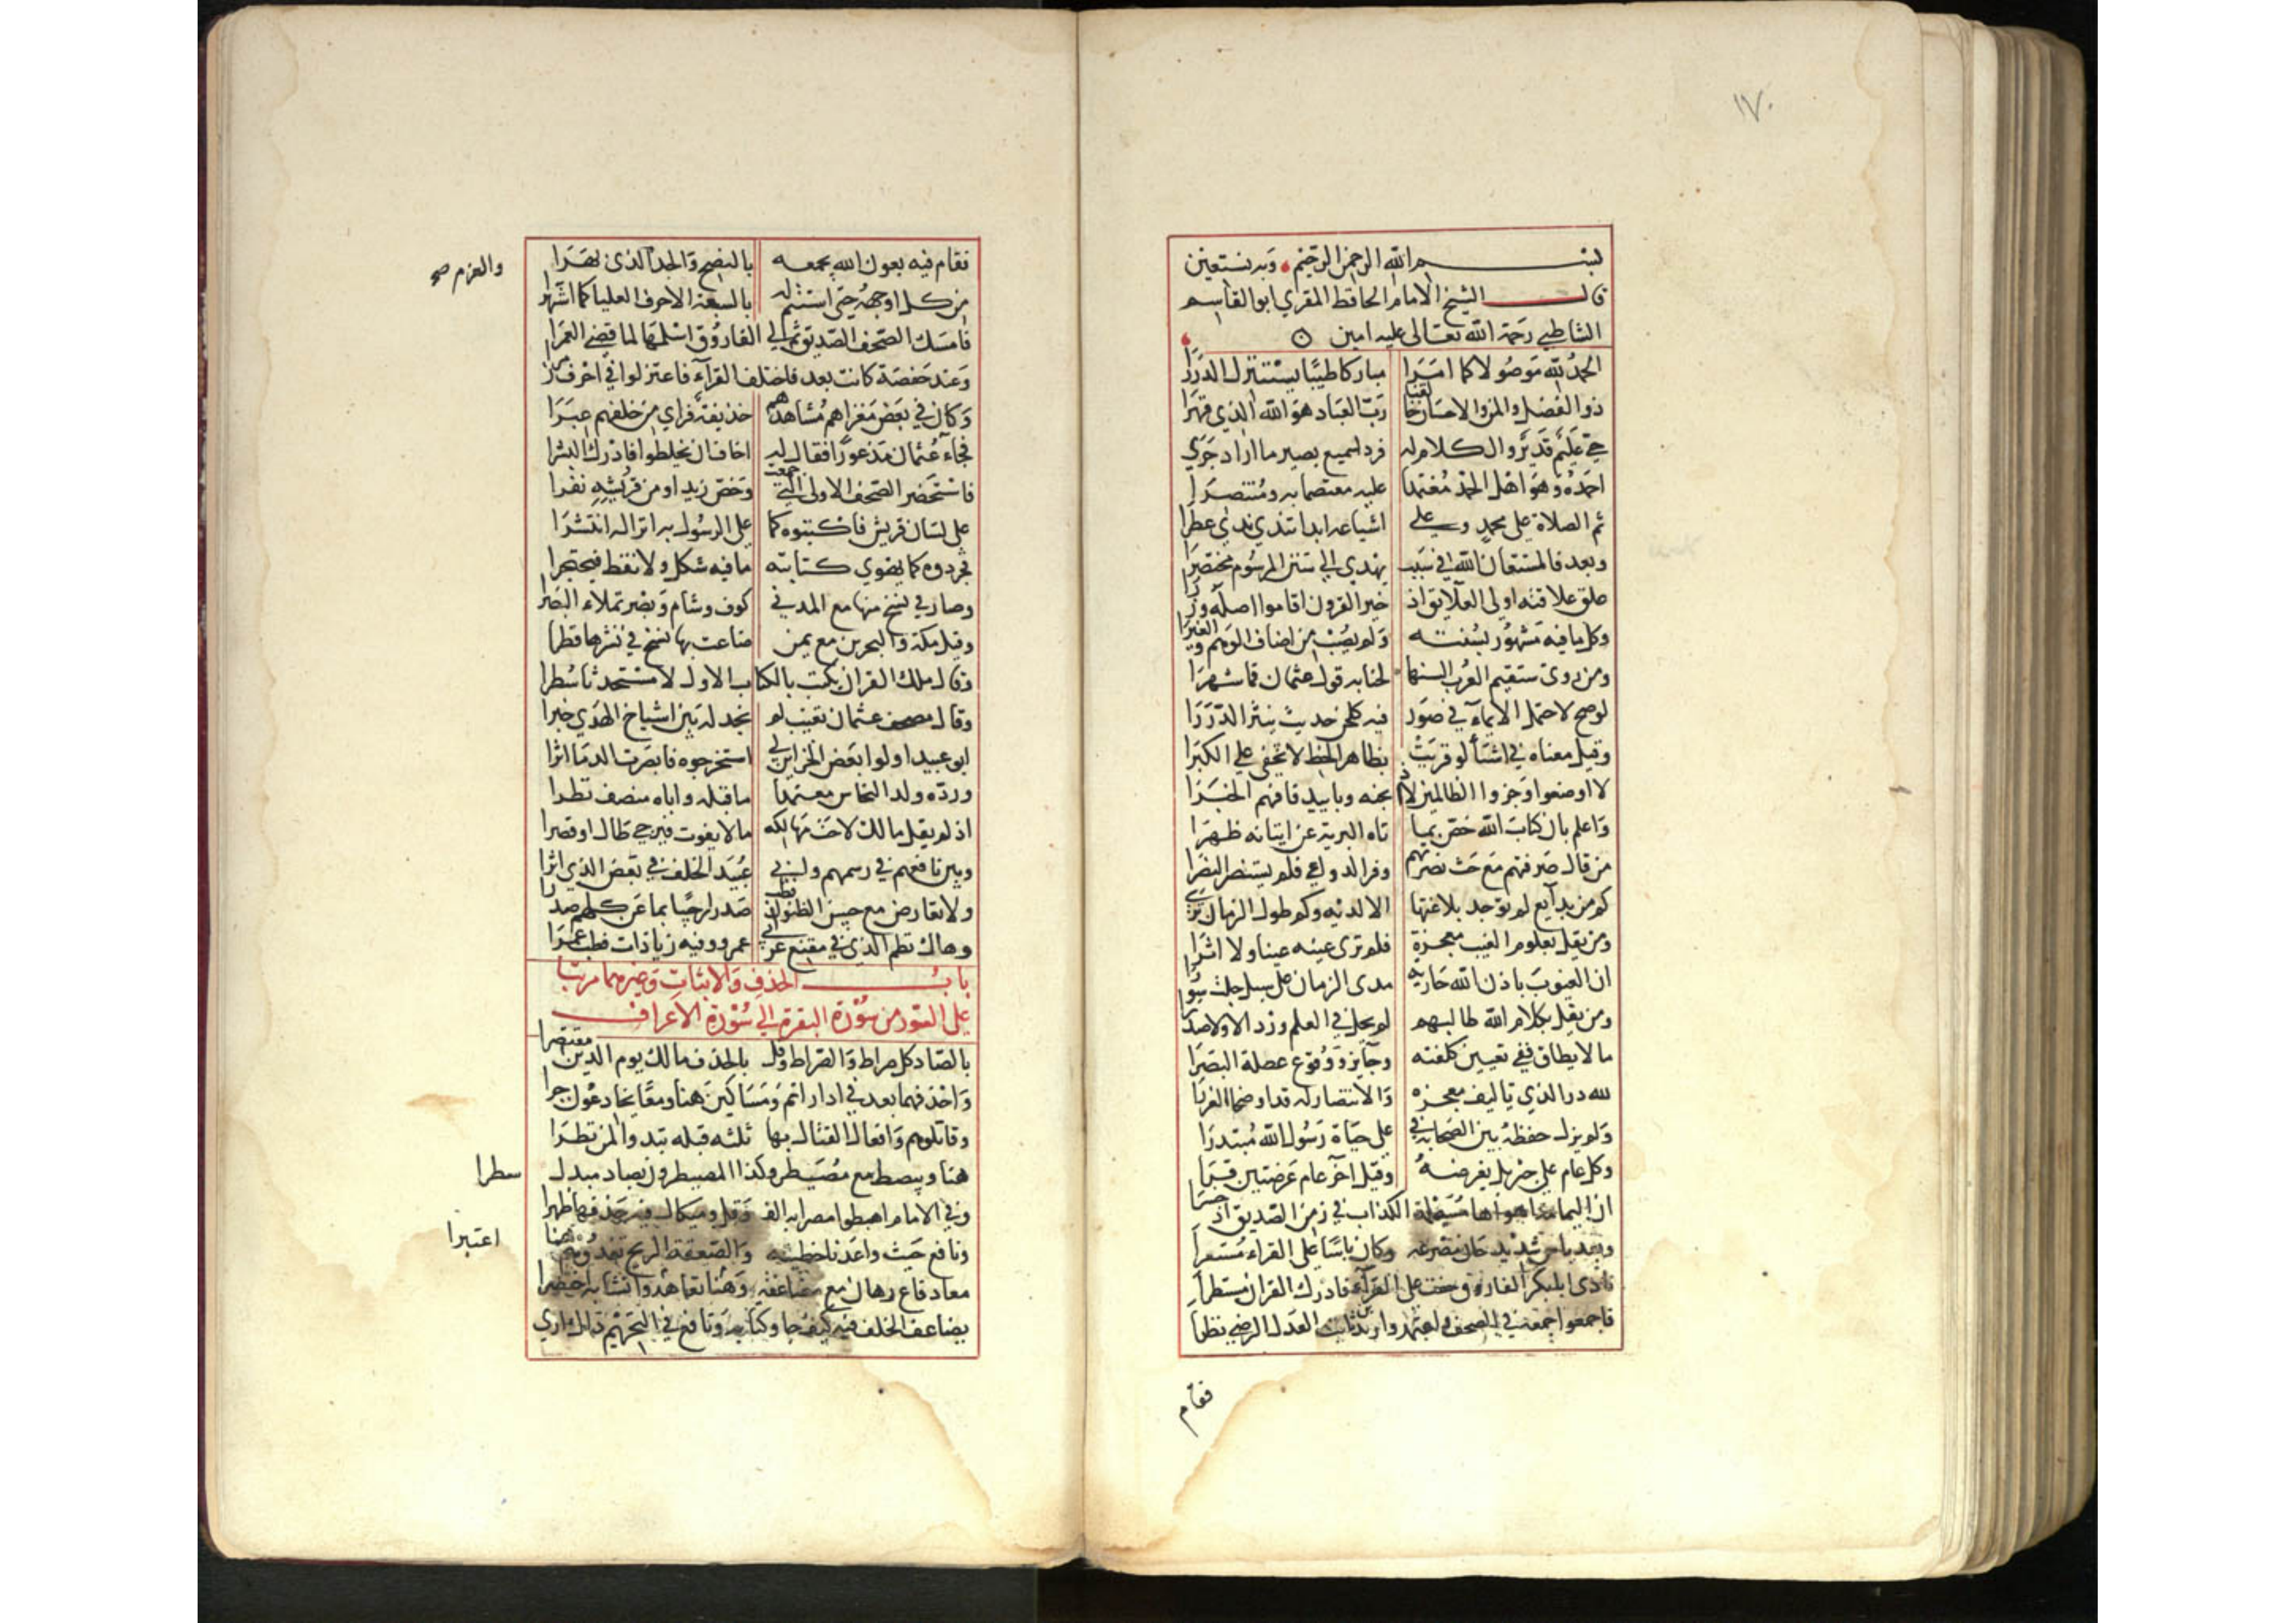 ١٧٠
بسم الله الرحمن الرحيم وبه نستعين
قال الشيخ الامام الحافظ المقري ابو القاسم
الشاطبي رحمة الله تعالى عليه امين
الحمد لله موصولا كما امرا مباركا طيبا يستنزل الدررا
ذو الفضل والمن والاحسان خالقنا رب العباد هو الله الذي قهرا
حي عليم قدير والكلام له فرد سميع بصير ما اراد جري
احمده وهو اهل الحمد معتمدا عليه معتصما به ومنتصرا
ثم الصلاة على محمد وعلي اشياعه ابدا تندي ندي عطرا
وبعد فالمستعان الله في سبب يهدي الي سنن المرسوم مختصرا
علق علائقه اولى العلائق اذ خير القرون اقاموا اصله وزرا
وكل ما فيه مشهور بسنته ولم يصب من اضاف الوهم والغيرا
ومن روى ستقيم العرب السنها لحنا به قول عثمان فما شهرا
لو صح لاحتمل الايماء في صور فيه كلحن حديث ينثر الدررا
وقيل معناه في اشيا لو قريت بظاهر الخط لا تخفى علي الكبرا
لا اوضعوا وجزوا الظالمين لا اذبحنه وباييد فافهم الخبرا
واعلم بان كتاب الله خص بما تاه البرية عن اتيانه ظهرا
من قال صرفتهم مع حث نصرتهم وفر الدواعي فلم يستنصر النصرا
كم من بدايع لم توجد بلاغتها الا لديه وكم طول الزمان تري
ومن يقل بعلوم الغيب معجزة فلم ترى عينه عينا ولا اثرا
ان الغيوب باذن الله جارية مدى الزمان على سبل جلت سورا
ومن يقل بكلام الله طالبهم لم يحل في العلم وردا لا ولا صدرا
ما لا يطاق ففي تعيين كلفته وجايز ووقوع عضلة البصرا
لله در الذي تاليف معجزه والانتصار له قد اوضحا الغررا
ولم يزل حفظه بين الصحابة في علي حياة رسول الله مبتدرا
وكل عام علي جبريل يعرضه وقيل اخر عام عرضتين قرا
ان اليمامة اهواها مسيلمة الكذاب في زمن الصديق اذ خسرا
وبعد باس شديد حان مصرعه وكان باسا علي القراء مستعرا
نادى ابا بكر الفاروق خفت على القراء فادرك القران مستطرا
فاجمعوا جمعه في الصحف واعتمدوا زيد بن ثابت العدل الرضي نظرا
فقام
فقام فيه بعون الله يجمعه بالنصح والجد الذي بهرا
والعزم صح
من كل اوجهه حتى استتم له بالسبعة الاحرف العليا كما اشتهرا
فامسك الصحف الصديق ثم الي الفاروق اسلمها لما قضى العمرا
وعند حفصة كانت بعد فاختلف القرآء فاعتزلوا في احرف زمرا
وكان في بعض مغزاهم مشاهدهم حذيفة فراي من خلفهم عبرا
فجاء عثمان مذعورا فقال له اخاف ان يخلطوا فادرك البشرا
فاستحضر الصحف الاولى التي جمعت وخص زيدا ومن قريشه نفرا
على لسان قريش فاكتبوه كما على الرسول به انزاله انتشرا
فجردوه كما يهوي كتابته ما فيه شكل ولا نقط فيحتجرا
وصار في نسخ منها مع المدني كوف وشام وبصر تملاء البصرا
وقيل مكة والبحرين مع يمن ضاعت بها نسخ في نشرها قطرا
وقال ملك القران يكتب بالكتاب الاول لا مستحدثا سطرا
وقال مصحف عثمان تغيب لم نجد له بين اشياخ الهدي خبرا
ابو عبيد اولوا بعض الخزاين لي استخرجوه فابصرت الدما اثرا
ورده ولد النحاس معتمدا ما قبله واباه منصف نظرا
اذ لم يقل مالك لاحت مهالكه ما لا يفوت فيرجي طال او قصرا
وبين نافعهم في رسمهم وابي عبيد الخلف في بعض الذي اثرا
ولا تعارض مع حسن الظنون فطب صدرا رحيبا بما عن كلهم صدرا
وهاك نظم الذي في مقنع عن ابي عمرو وفيه زيادات فطب عمرا
باب الحذف والاثبات وغيرهما مرتبا
على السور من سورة البقرة الي سورة الاعراف
بالصاد كل صراط والصراط وقل بالحذف مالك يوم الدين مقتصرا
واحذفهما بعد في ادارأتم ومساكين هنا ومعا يخادعون جرا
وقاتلوهم وافعال القتال بها ثلثة قبله تبدوا لمن نظرا
هنا ويبصط مع مصيطر وكذا المصيطرون بصاد مبدل
سطرا
وفي الامام اهبطوا مصرا به الف وقل وميكال فيها حذفها ظهرا
ونافع حيث واعدنا خطيئته والصعقة الريح تفدوهم هنا
اعتبرا
معا دفاع رهان مع مضاعفة وهنا تعاهدوا تشابه اختصرا
يضاعف الخلف فيه كيف جا وكتابه ونافع في التحريم ذاك اري